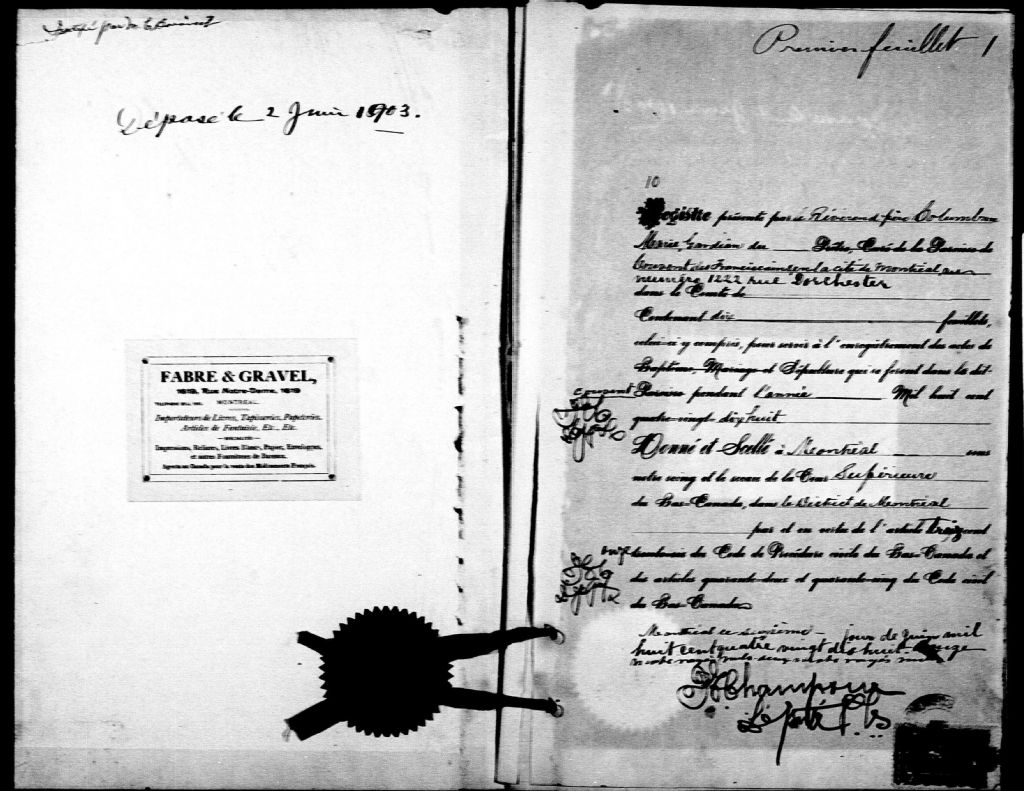 Déposé le 2 Juin 1903.
FABRE & GRAVEL,
1619, Rue Notre-Dame, 1619
MONTREAL
Importateurs de Livres, Tapisseries, Papeteries,
Articles de Fantaisie, Etc., Etc.
SPECIALITÉS
Impressions, Reliures, Livres Blancs, Papier, Enveloppes,
et autres Fournitures de Bureaux.
Agents au Canada pour la vente des Médicaments Français.
Premier feuillet 1
10
Registre présenté par le Révérend père Columban
Marie, Gardien du Prêtre, Curé de la Paroisse de
Couvent des Franciscains en la cité de Montréal au
numéro 1222 rue Dorchester
dans le Comté de
Contenant dix feuillets,
celui-ci y compris, pour servir à l'enregistrement des actes de
Baptême, Mariage et Sépulture qui se feront dans la dit
Couvent Paroisse pendant l'année Mil huit cent
quatre-vingt dix huit
Donné et Scellé à Montréal sous
notre seing et le sceau de la Cour Supérieure
du Bas-Canada, dans le District de Montréal
par et en vertu de l'article treize cent
trentenaire du Code de Procédure civile du Bas-Canada et
des articles quarante-deux et quarante-cinq du Code civil
du Bas-Canada
Montréal ce jour de juin mil
huit cent quatre vingt dix huit
Champoux
Dépté P.C.S.